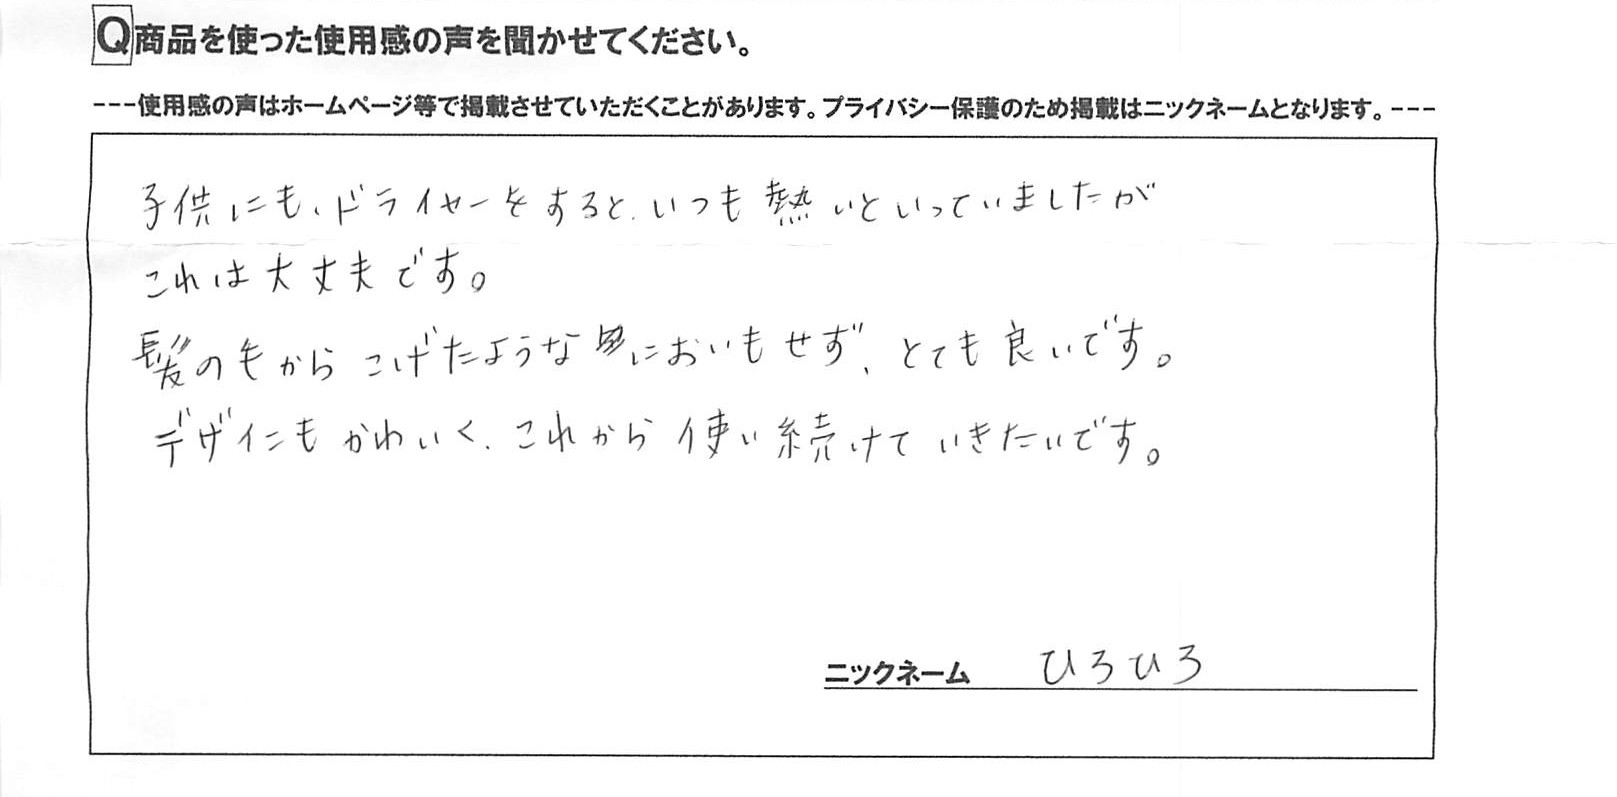 Q商品を使った使用感の声を聞かせてください。
---使用感の声はホームページ等で掲載させていただくことがあります。プライバシー保護のため掲載はニックネームとなります。---
子供にも、ドライヤーをすると、いつも熱いといっていましたが
これは大丈夫です。
髪のもから こげたような においもせず、とても良いです。
デザインもかわいく、これから使い続けていきたいです。
ニックネーム ひろひろ